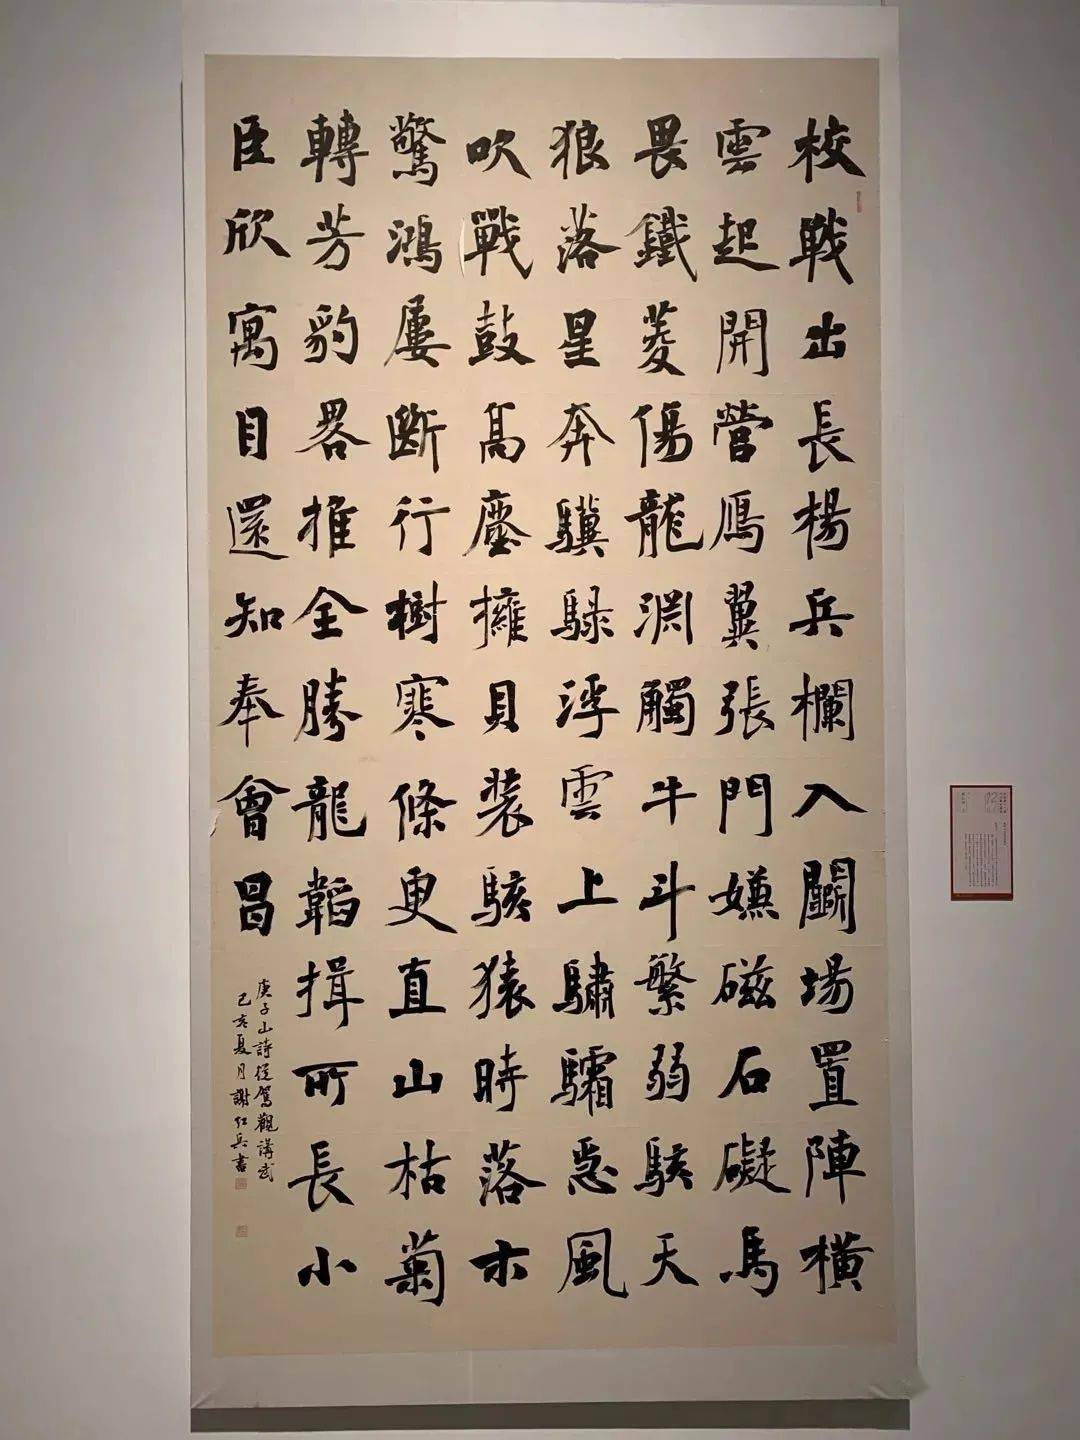 校戰出長楊兵欄入鬬場置陣橫
雲起開營鴈翼張門嫌磁石礙馬
畏鐵菱傷龍淵觸牛斗繁弱駭天
狼落星奔驥騄浮雲上驌驦惡風
吹戰鼓高塵擁貝裝駭猿時落木
驚鴻屢斷行樹寒條更直山枯菊
轉芳豹畧推全勝龍韜揖所長小
臣欣寓目還知奉會昌
庾子山詩從駕觀講武
己亥夏月謝紅兵書